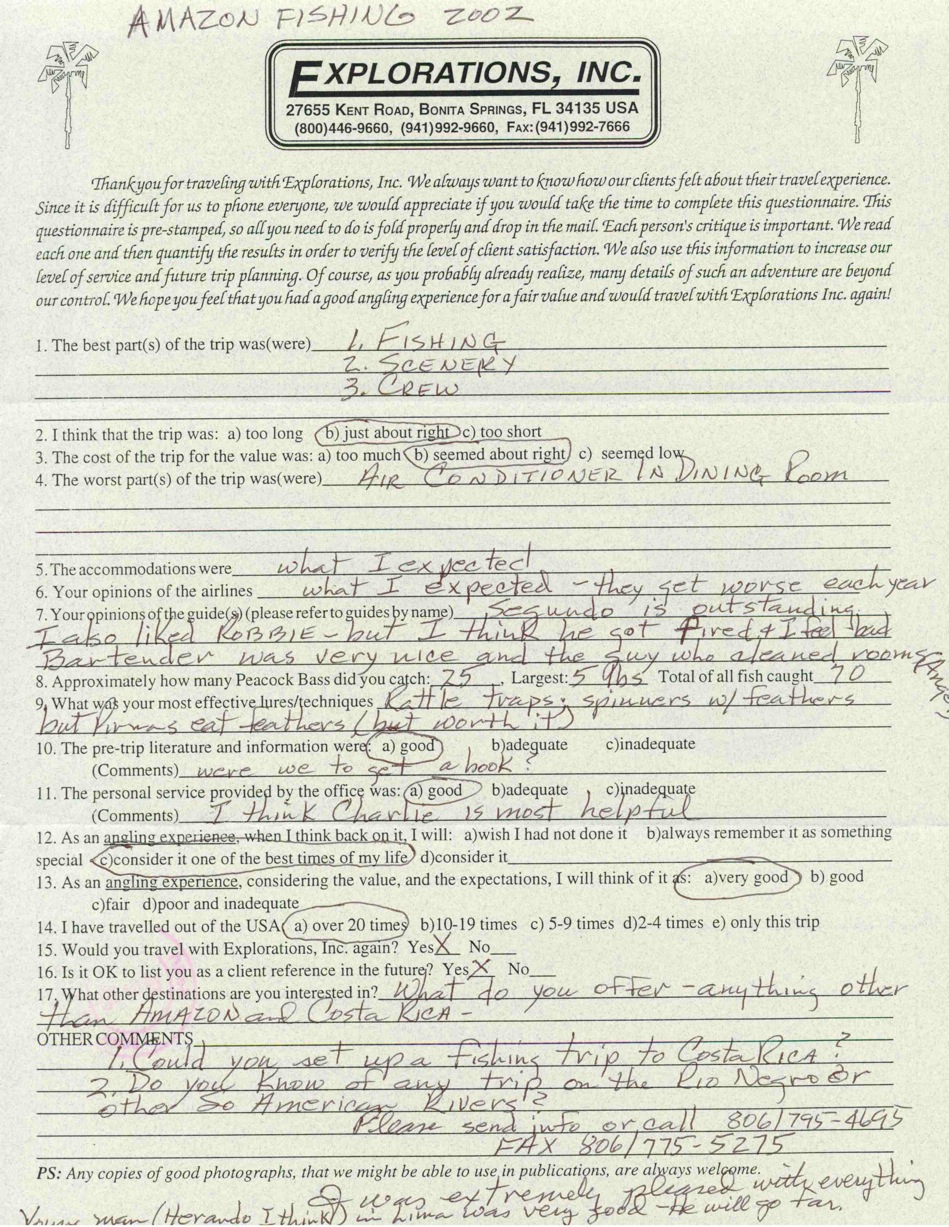 AMAZON FISHING 2002
EXPLORATIONS, INC.
27655 KENT ROAD, BONITA SPRINGS, FL 34135 USA
(800)446-9660, (941)992-9660, FAX:(941)992-7666
Thank you for traveling with Explorations, Inc. We always want to know how our clients felt about their travel experience.
Since it is difficult for us to phone everyone, we would appreciate if you would take the time to complete this questionnaire. This
questionnaire is pre-stamped, so all you need to do is fold properly and drop in the mail. Each person's critique is important. We read
each one and then quantify the results in order to verify the level of client satisfaction. We also use this information to increase our
level of service and future trip planning. Of course, as you probably already realize, many details of such an adventure are beyond
our control. We hope you feel that you had a good angling experience for a fair value and would travel with Explorations Inc. again!
1. The best part(s) of the trip was(were) 1. FISHING
2. SCENERY
3. CREW
2. I think that the trip was: a) too long b) just about right c) too short
3. The cost of the trip for the value was: a) too much b) seemed about right c) seemed low
4. The worst part(s) of the trip was(were) AIR CONDITIONER IN DINING Room
5. The accommodations were what I expected
6. Your opinions of the airlines what I expected - they get worse each year
7. Your opinions of the guide(s) (please refer to guides by name) Segundo is outstanding.
I also liked ROBBIE - but I think he got fired & I feel bad
Bartender was very nice and the guy who cleaned rooms
8. Approximately how many Peacock Bass did you catch: 25, Largest: 5 lbs Total of all fish caught 70
9. What was your most effective lures/techniques Rattle traps; spinners w/ feathers
but Piranas eat feathers (but worth it)
10. The pre-trip literature and information were: a) good b)adequate c)inadequate
(Comments) were we to get a book?
11. The personal service provided by the office was: a) good b)adequate c)inadequate
(Comments) I think Charlie is most helpful
12. As an angling experience, when I think back on it, I will: a)wish I had not done it b)always remember it as something
special c)consider it one of the best times of my life d)consider it
13. As an angling experience, considering the value, and the expectations, I will think of it as: a)very good b) good
c)fair d)poor and inadequate
14. I have travelled out of the USA a) over 20 times b)10-19 times c) 5-9 times d)2-4 times e) only this trip
15. Would you travel with Explorations, Inc. again? Yes X No
16. Is it OK to list you as a client reference in the future? Yes X No
17. What other destinations are you interested in? What do you offer - anything other
than AMAZON and COSTA RICA -
OTHER COMMENTS
1. Could you set up a fishing trip to COSTA RICA?
2. Do you know of any trip on the Rio Negro or
other So American Rivers?
Please send info or call 806/795-4695
FAX 806/775-5275
PS: Any copies of good photographs, that we might be able to use in publications, are always welcome.
I was extremely pleased with everything
Young man (Herando I think) in Lima was very good - He will go far.